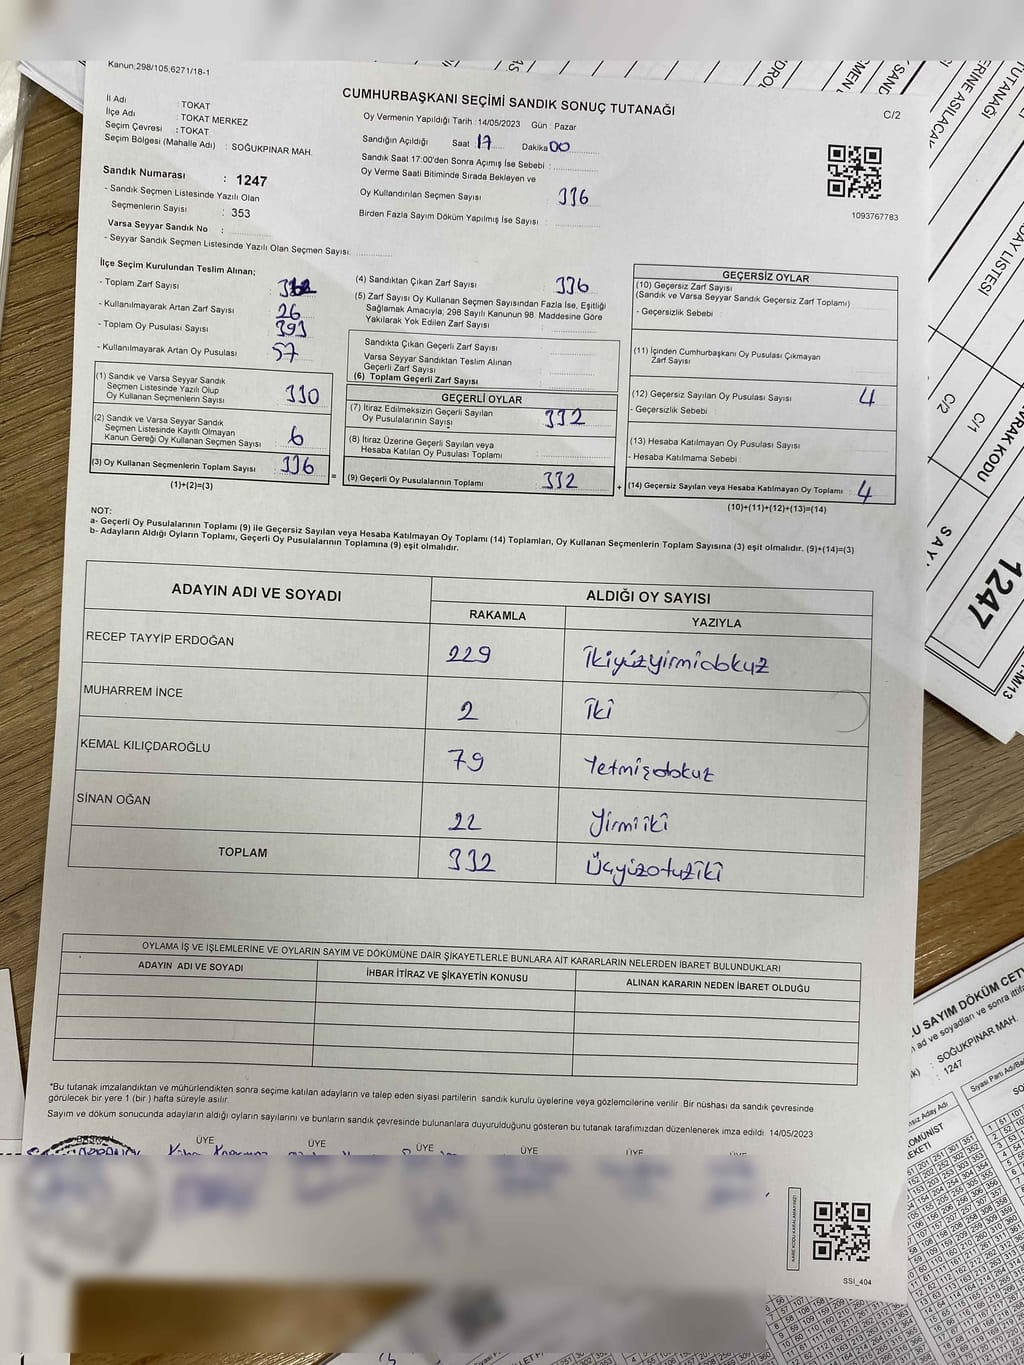 Kanun,298/105,6271/18-1
CUMHURBAŞKANI SEÇİMİ SANDIK SONUÇ TUTANAĞI
C/2
İl Adı : TOKAT
İlçe Adı : TOKAT MERKEZ
Seçim Çevresi : TOKAT
Seçim Bölgesi (Mahalle Adı) : SOĞUKPINAR MAH.
Sandık Numarası : 1247
- Sandık Seçmen Listesinde Yazılı Olan
Seçmenlerin Sayısı : 353
Varsa Seyyar Sandık No :
- Seyyar Sandık Seçmen Listesinde Yazılı Olan Seçmen Sayısı:
Oy Vermenin Yapıldığı Tarih : 14/05/2023 Gün : Pazar
Sandığın Açıldığı Saat : 17 Dakika 00
Sandık Saat 17:00'den Sonra Açımış İse Sebebi :
Oy Verme Saati Bitiminde Sırada Bekleyen ve
Oy Kullandırılan Seçmen Sayısı 336
Birden Fazla Sayım Döküm Yapılmış İse Sayısı :
1093767783
İlçe Seçim Kurulundan Teslim Alınan;
- Toplam Zarf Sayısı
- Kullanılmayarak Artan Zarf Sayısı 26
- Toplam Oy Pusulası Sayısı 393
- Kullanılmayarak Artan Oy Pusulası 57
(1) Sandık ve Varsa Seyyar Sandık
Seçmen Listesinde Yazılı Olup
Oy Kullanan Seçmenlerin Sayısı 330
(2) Sandık ve Varsa Seyyar Sandık
Seçmen Listesinde Kayıtlı Olmayan
Kanun Gereği Oy Kullanan Seçmen Sayısı : 6
(3) Oy Kullanan Seçmenlerin Toplam Sayısı : 336
(1)+(2)=(3)
=
(4) Sandıktan Çıkan Zarf Sayısı : 336
(5) Zarf Sayısı Oy Kullanan Seçmen Sayısından Fazla İse, Eşitliği
Sağlamak Amacıyla; 298 Sayılı Kanunun 98. Maddesine Göre
Yakılarak Yok Edilen Zarf Sayısı :
Sandıkta Çıkan Geçerli Zarf Sayısı
Varsa Seyyar Sandıktan Teslim Alınan
Geçerli Zarf Sayısı
(6) Toplam Geçerli Zarf Sayısı
GEÇERLİ OYLAR
(7) İtiraz Edilmeksizin Geçerli Sayılan
Oy Pusulalarının Sayışı : 332
(8) İtiraz Üzerine Geçerli Sayılan veya
Hesaba Katılan Oy Pusulası Toplamı :
(9) Geçerli Oy Pusulalarının Toplamı : 332
+
GEÇERSİZ OYLAR
(10) Geçersiz Zarf Sayısı
(Sandık ve Varsa Seyyar Sandık Geçersiz Zarf Toplamı)
- Geçersizlik Sebebi :
(11) İçinden Cumhurbaşkanı Oy Pusulası Çıkmayan
Zarf Sayısı
(12) Geçersiz Sayılan Oy Pusulası Sayısı 4
- Geçersizlik Sebebi
(13) Hesaba Katılmayan Oy Pusulası Sayısı
- Hesaba Katılmama Sebebi :
(14) Geçersiz Sayılan veya Hesaba Katılmayan Oy Toplamı : 4
(10)+(11)+(12)+(13)=(14)
NOT:
a- Geçerli Oy Pusulalarının Toplamı (9) ile Geçersiz Sayılan veya Hesaba Katılmayan Oy Toplamı (14) Toplamları, Oy Kullanan Seçmenlerin Toplam Sayısına (3) eşit olmalıdır. (9)+(14)=(3)
b- Adayların Aldığı Oyların Toplamı, Geçerli Oy Pusulalarının Toplamına (9) eşit olmalıdır.
ADAYIN ADI VE SOYADI ALDIĞI OY SAYISI
RAKAMLA YAZIYLA
RECEP TAYYİP ERDOĞAN 229 İkiyüzyirmidokuz
MUHARREM İNCE 2 İki
KEMAL KILIÇDAROĞLU 79 Yetmişdokuz
SİNAN OĞAN 22 Yirmiiki
TOPLAM 332 Üçyüzotuziki
OYLAMA İŞ VE İŞLEMLERİNE VE OYLARIN SAYIM VE DÖKÜMÜNE DAİR ŞİKAYETLERLE BUNLARA AİT KARARLARIN NELERDEN İBARET BULUNDUKLARI
ADAYIN ADI VE SOYADI İHBAR İTİRAZ VE ŞİKAYETİN KONUSU ALINAN KARARIN NEDEN İBARET OLDUĞU
*Bu tutanak imzalandıktan ve mühürlendikten sonra seçime katılan adayların ve talep eden siyasi partilerin sandık kurulu üyelerine veya gözlemcilerine verilir. Bir nüshası da sandık çevresinde
görülecek bir yere 1 (bir ) hafta süreyle asılır.
Sayım ve döküm sonucunda adayların aldığı oyların sayılarını ve bunların sandık çevresinde bulunanlara duyurulduğunu gösteren bu tutanak tarafımızdan düzenlenerek imza edildi. 14/05/2023
ÜYE ÜYE ÜYE ÜYE ÜYE ÜYE
KARE KODU KARALAMAYINIZ!
SSİ_404
TUTANAĞI
C/2
C/1
1247
SOĞUKPINAR MAH.
: 1247